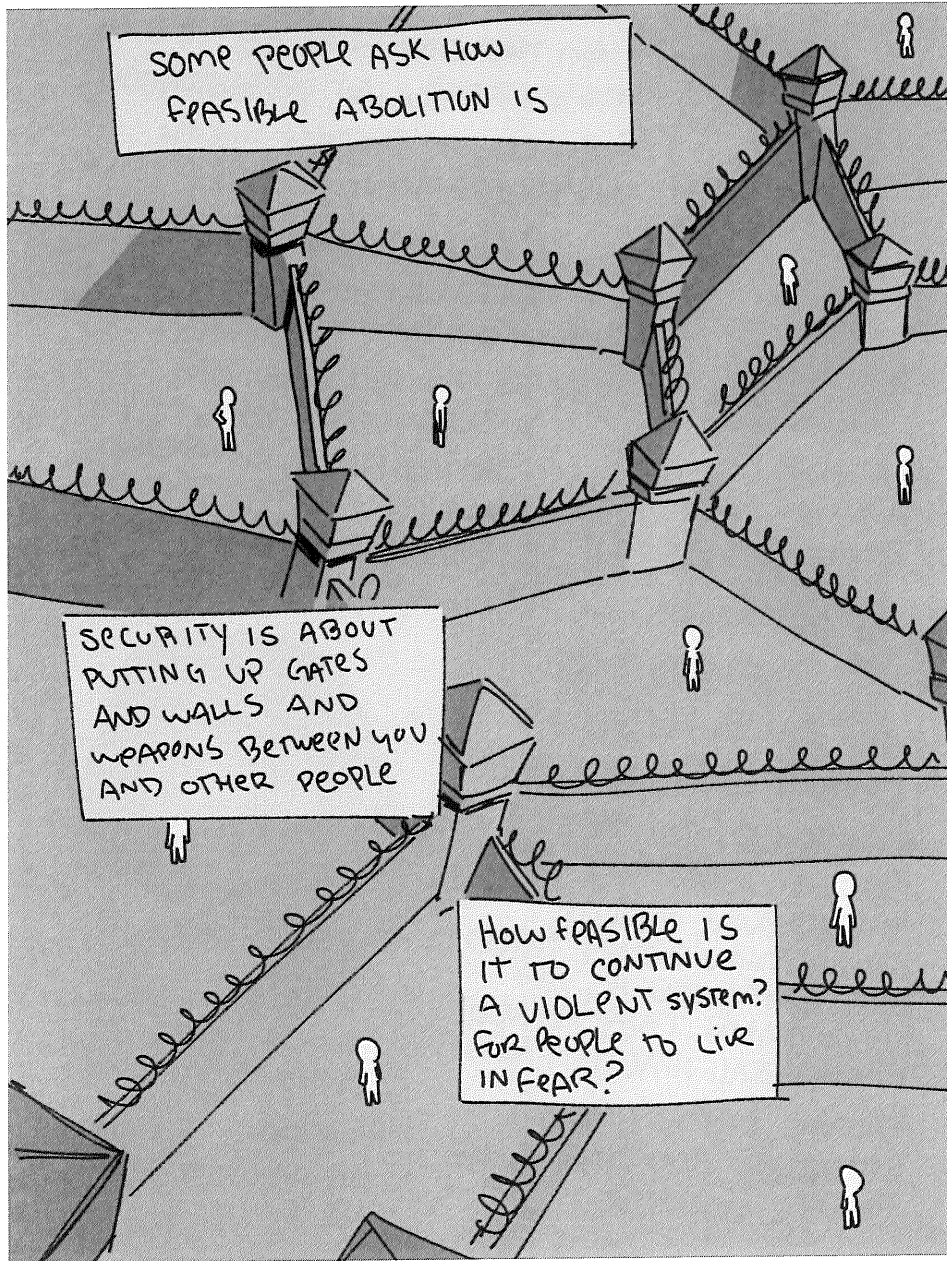 SOME PEOPLE ASK HOW
FEASIBLE ABOLITION IS
SECURITY IS ABOUT
PUTTING UP GATES
AND WALLS AND
WEAPONS BETWEEN YOU
AND OTHER PEOPLE
HOW FEASIBLE IS
IT TO CONTINUE
A VIOLENT SYSTEM?
FOR PEOPLE TO LIVE
IN FEAR?